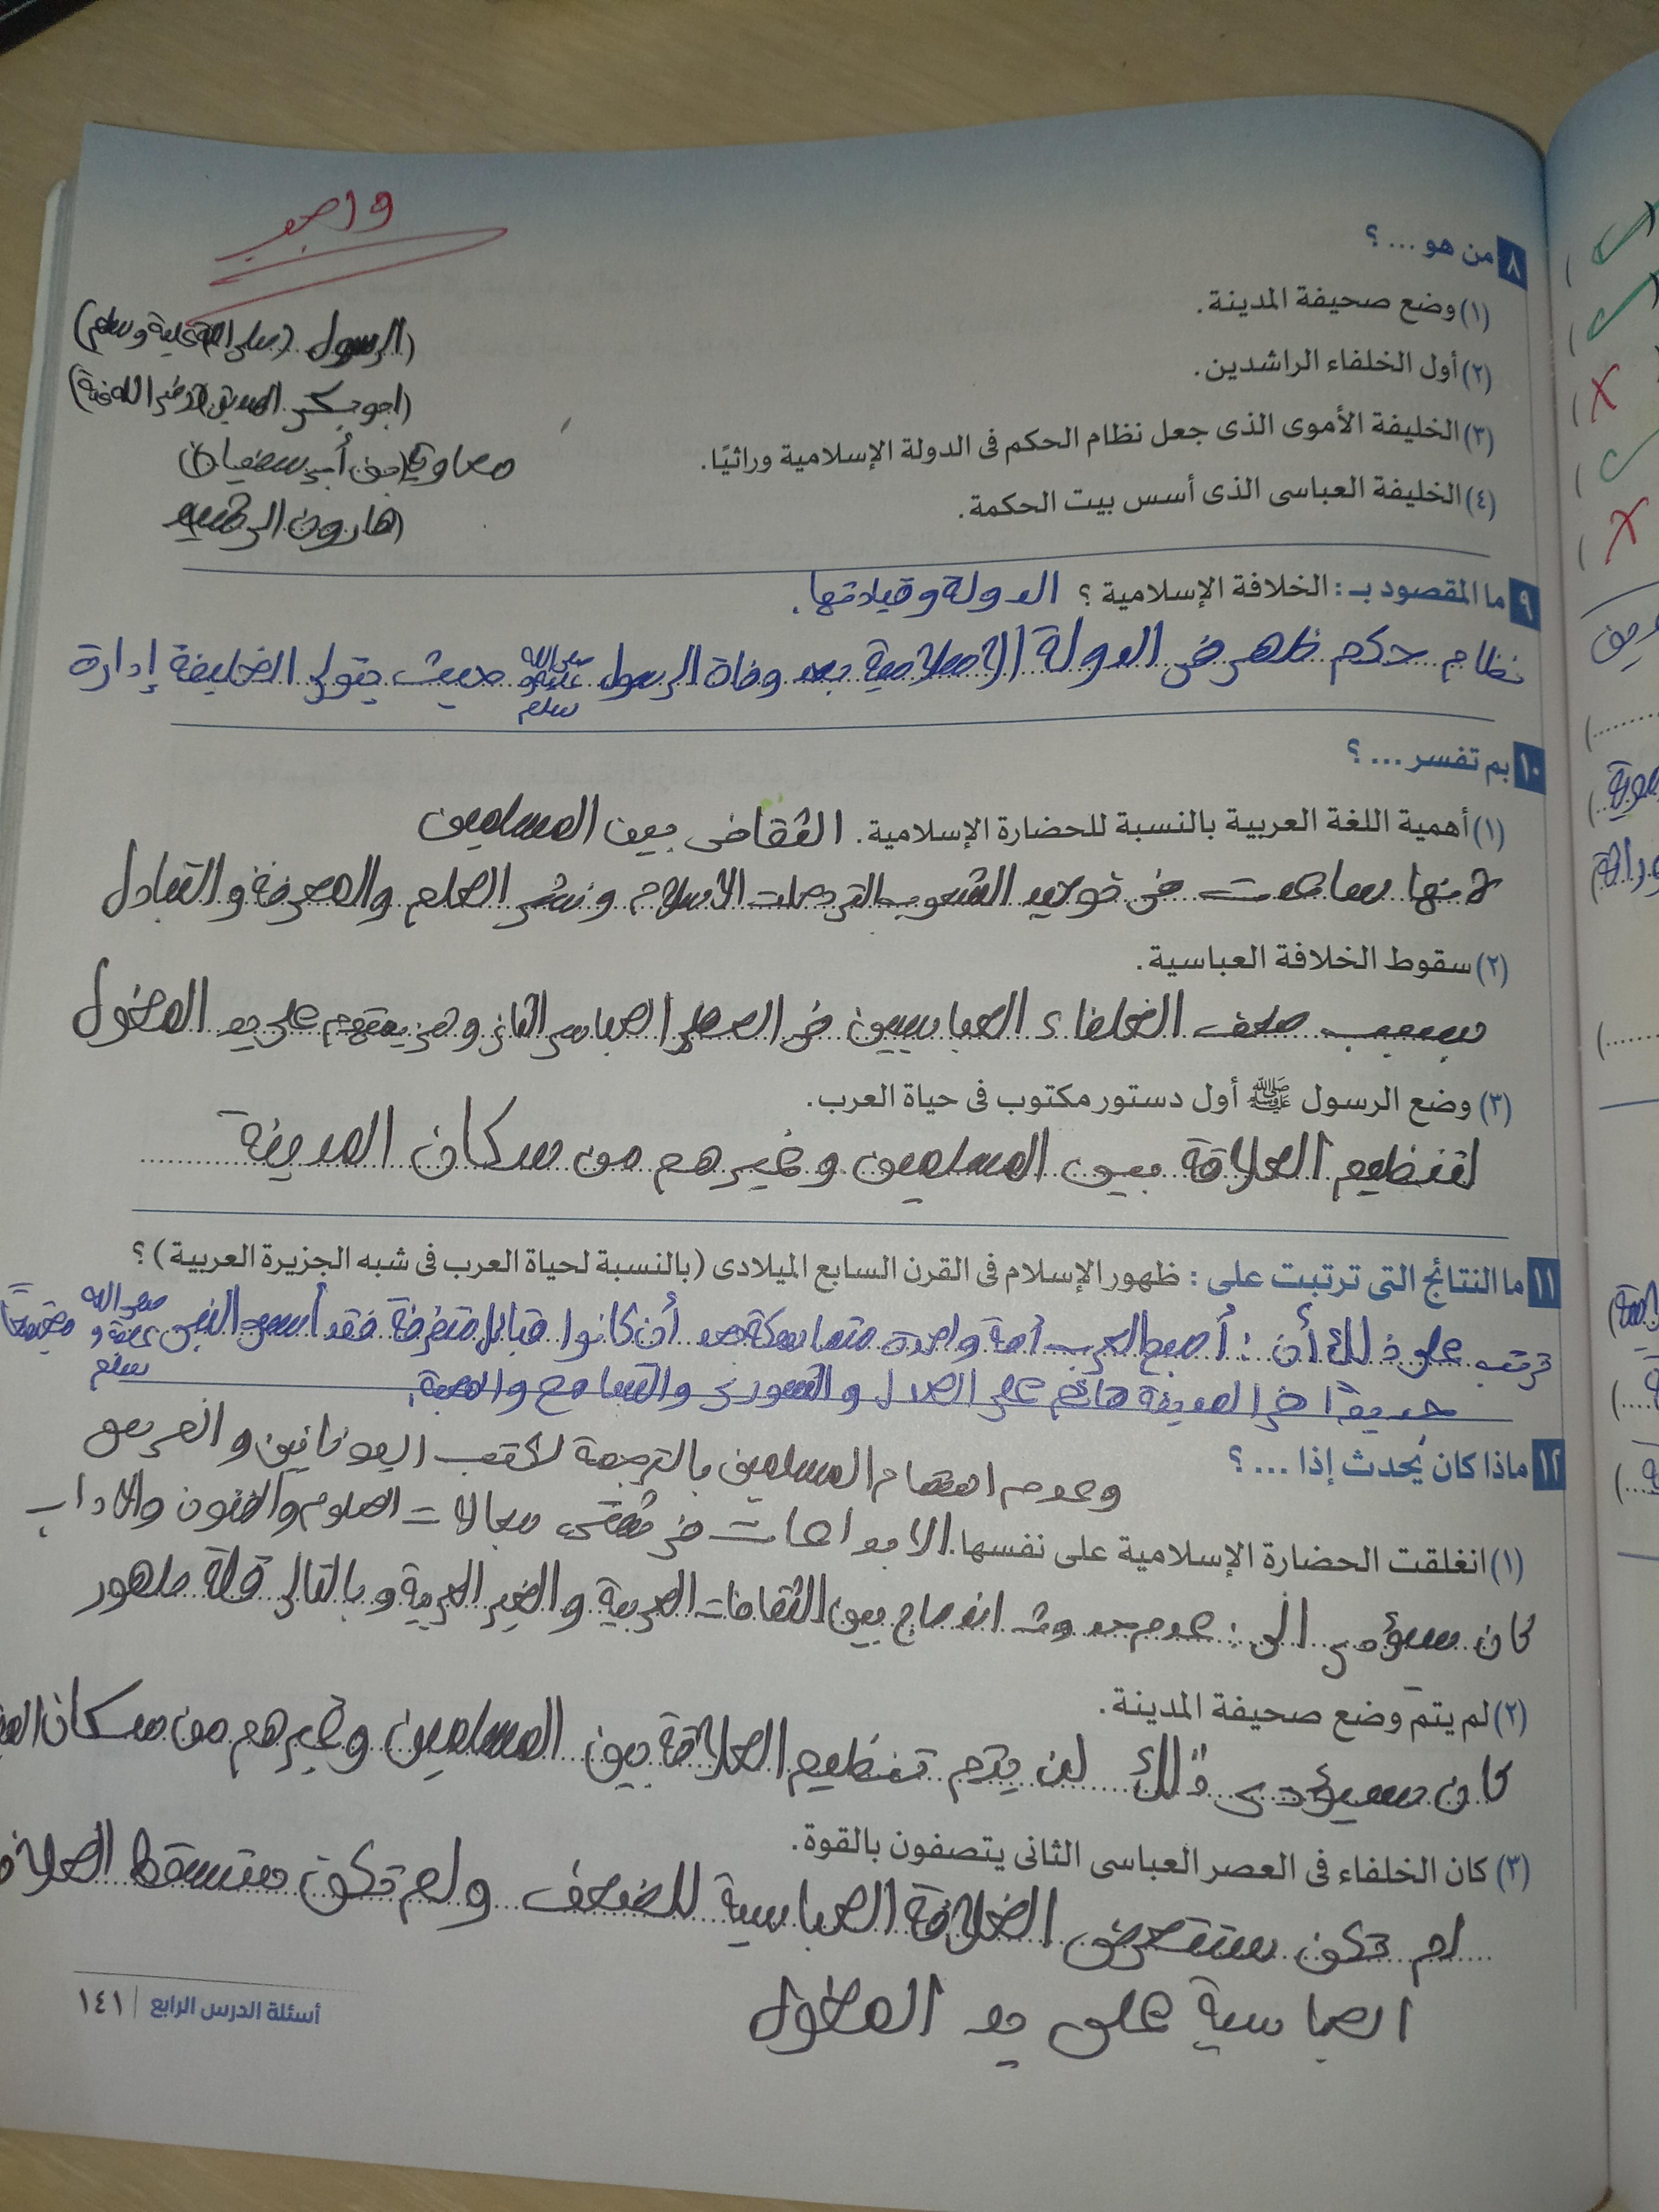 واجب
٨ من هو ... ؟
(١) وضع صحيفة المدينة.
(الرسول (صلى الله عليه وسلم)
(٢) أول الخلفاء الراشدين.
(ابو بكر الصديق رضى الله عنه)
(٣) الخليفة الأموى الذى جعل نظام الحكم فى الدولة الإسلامية وراثيًا.
معاوية (بن أبى سفيان)
(٤) الخليفة العباسى الذى أسس بيت الحكمة.
(هارون الرشيد
٩ ما المقصود بـ : الخلافة الإسلامية ؟ الدولة وقيادتها.
نظام حكم ظهر فى الدولة الاسلامية بعد وفاة الرسول صلى الله عليه و سلم حيث يتولى الخليفة إدارة
١٠ بم تفسر ... ؟
(١) أهمية اللغة العربية بالنسبة للحضارة الإسلامية. الثقافى بين المسلمين
لانها ساعدت فى توحيد الشعوب التى دخلت الاسلام ونشر العلم والمعرفة والتبادل
(٢) سقوط الخلافة العباسية.
بسبب ضعف الخلفاء العباسيين فى العصر العباسى الثانى وهزيمتهم على يد المغول
(٣) وضع الرسول ﷺ أول دستور مكتوب فى حياة العرب.
لتنظيم العلاقة بين المسلمين وغيرهم من سكان المدينة
١١ ما النتائج التى ترتبت على : ظهور الإسلام فى القرن السابع الميلادى (بالنسبة لحياة العرب فى شبه الجزيرة العربية) ؟
ترتب على ذلك أن : أصبح العرب أمة واحدة متماسكة بعد أن كانوا قبائل متفرقة فقد أسس النبى صلى الله عليه و سلم مجتمعًا
جديدًا فى المدينة قائم على العدل والشورى والتسامح والمحبة.
١٢ ماذا كان يُحدث إذا ... ؟
وعدم اهتمام المسلمين بالترجمة لكتب اليونانيين و
(١) انغلقت الحضارة الإسلامية على نفسها. الابداعات فى شتى مجالات العلوم والفنون والاداب
كان سيؤدى الى : عدم حدوث اندماج بين الثقافات العربية والغير العربية وبالتالى قلة ظهور
(٢) لم يتم وضع صحيفة المدينة.
كان سيؤدى ذلك لن يتم تنظيم العلاقة بين المسلمين وغيرهم من سكان
(٣) كان الخلفاء فى العصر العباسى الثانى يتصفون بالقوة.
لم تكن ستتعرض الخلافة العباسية للضعف ولم تكن ستسقط
العباسية على يد المغول
أسئلة الدرس الرابع | ١٤١